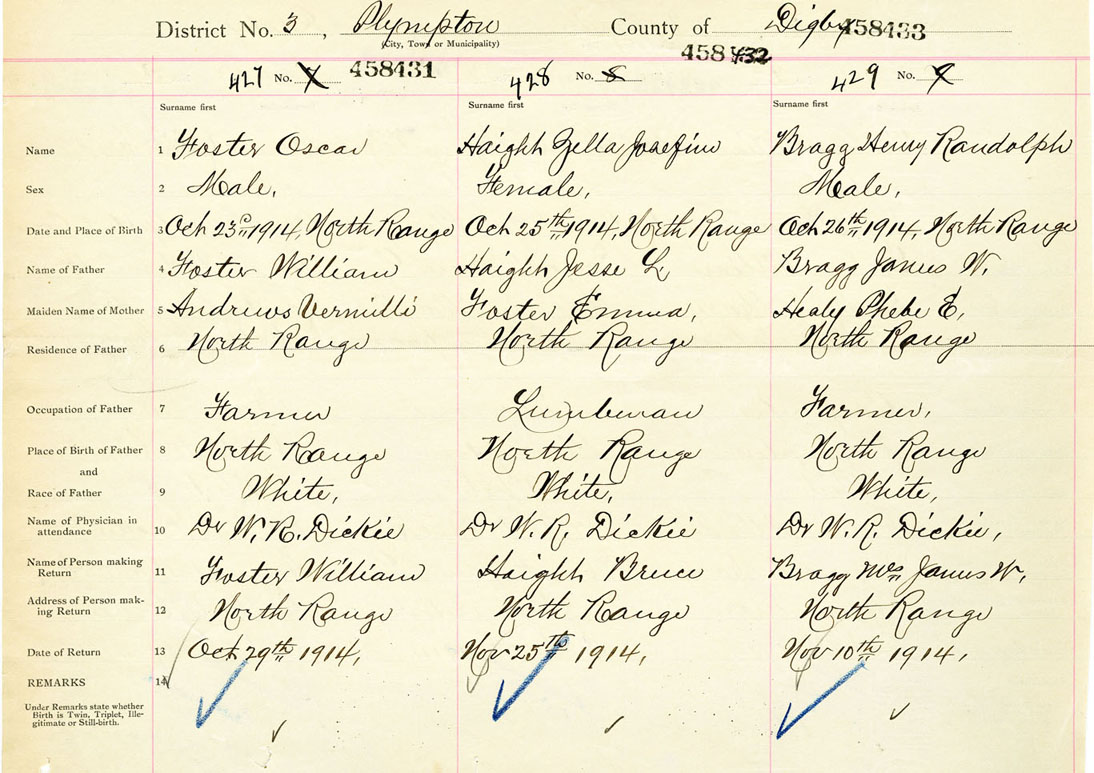 District No. 3, Plympton County of Digby 458433
(City, Town or Municipality) 458432
427 No. 7 458431 428 No. 8 429 No. 9
Surname first Surname first Surname first
Name 1 Foster Oscar Haight Zella Josefine Bragg Henry Randolph
Sex 2 Male, Female, Male,
Date and Place of Birth 3 Oct 23rd 1914, North Range Oct 25th 1914, North Range Oct 26th 1914, North Range
Name of Father 4 Foster William Haight Jesse L Bragg James W.
Maiden Name of Mother 5 Andrews Vermille Foster Emma, Healy Phebe E,
Residence of Father 6 North Range North Range North Range
Occupation of Father 7 Farmer Lumberman Farmer,
Place of Birth of Father 8 North Range North Range North Range
and
Race of Father 9 White, White, White,
Name of Physician in
attendance 10 Dr W. R. Dickie Dr W. R. Dickie Dr W. R. Dickie,
Name of Person making
Return 11 Foster William Haight Bruce Bragg Mrs James W,
Address of Person mak-
ing Return 12 North Range North Range North Range
Date of Return 13 Oct 29th 1914, Nov 25th 1914, Nov 10th 1914,
REMARKS 14
Under Remarks state whether
Birth is Twin, Triplet, Ille-
gitimate or Still-birth.